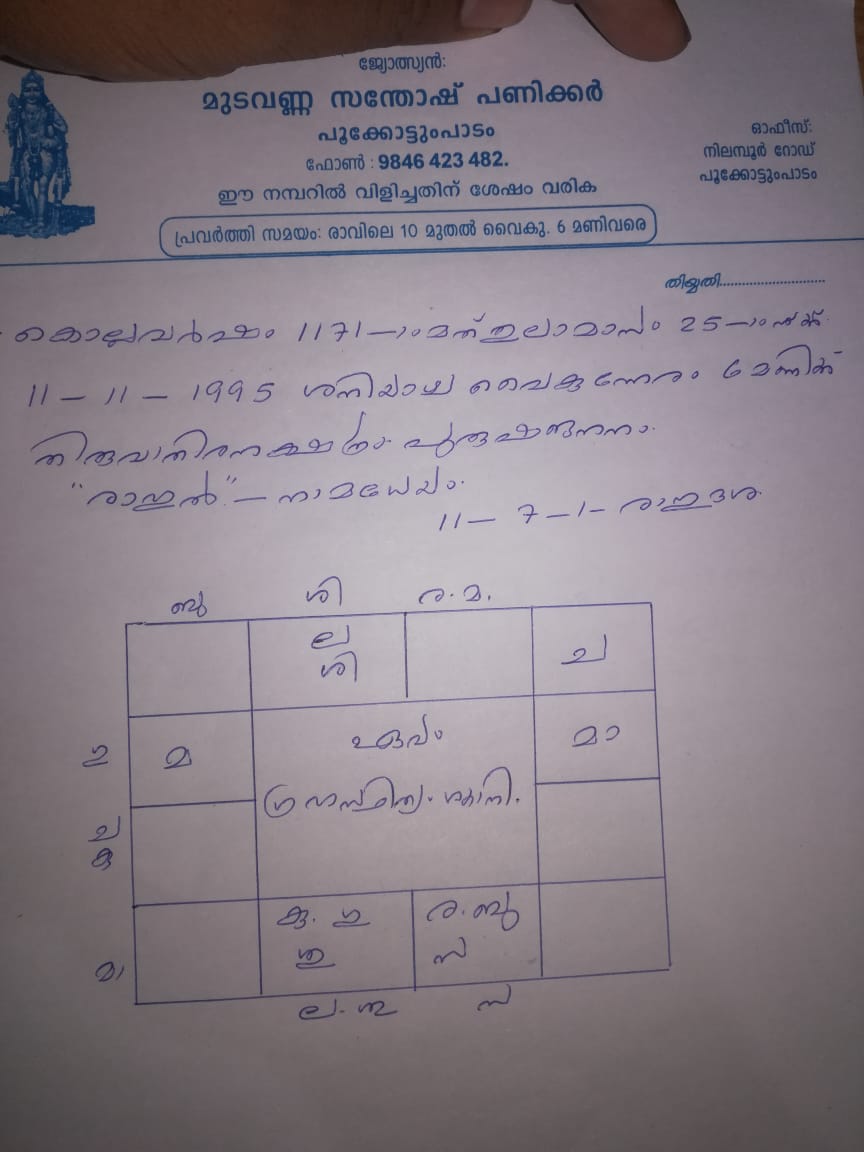 ജ്യോത്സ്യൻ:
മുടവണ്ണ സന്തോഷ് പണിക്കർ
പൂക്കോട്ടുംപാടം
ഫോൺ : 9846 423 482.
ഈ നമ്പറിൽ വിളിച്ചതിന് ശേഷം വരിക
ഓഫീസ്:
നിലമ്പൂർ റോഡ്
പൂക്കോട്ടുംപാടം
പ്രവർത്തി സമയം: രാവിലെ 10 മുതൽ വൈകു. 6 മണിവരെ
തിയ്യതി...........................
കൊല്ലവർഷം 1171-ാംമത് തുലാമാസം 25-ാംന്
11 - 11 - 1995 ശനിയാഴ്ച വൈകുന്നേരം 6 മണിക്ക്
തിരുവാതിരനക്ഷത്രം പുരുഷജനനം.
"രാഹുൽ" - നാമധേയം.
11 - 7 - 1 - രാഹുദശ
ബു ശി ര.മ.
ല
ശി
ച
ഗു മ
മാ
ഏവം
ഗ്രഹസ്ഥിത്യം
ച
കു
കു. ഗു
ശു
ര.ബു
സ
മാ
ല.ശു സ